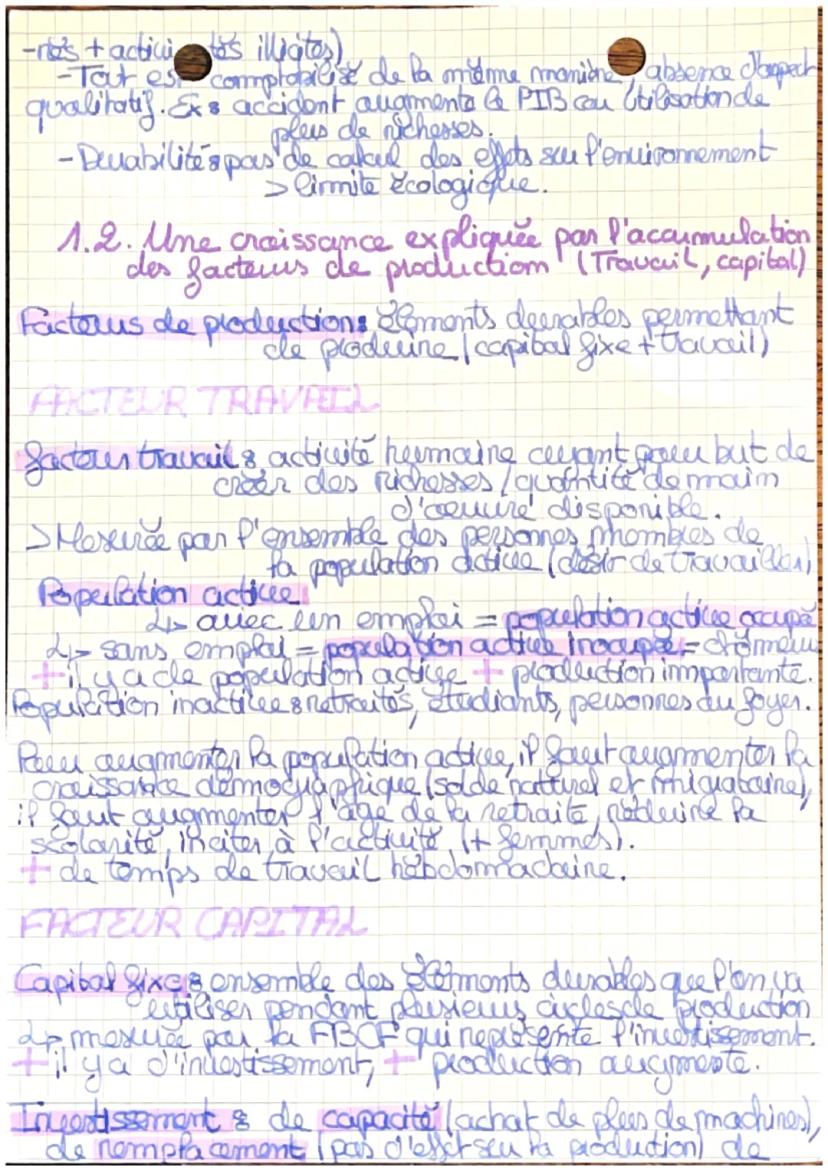 -nés + activi tés illicites)
-Tout est comptabilisé de la même manière, absence d'aspect
qualitatif. Ex: accident augmente le PIB car utilisation de
plus de richesses.
- Durabilité: pas de calcul des effets sur l'environnement
> limite écologique.
1.2. Une croissance expliquée par l'accumulation
des facteurs de production (Travail, capital)
Facteurs de production: éléments durables permettant
de produire (capital fixe + travail)
FACTEUR TRAVAIL
facteur travail: activité humaine ayant pour but de
créer des richesses / quantité de main
d'oeuvre disponible.
> Mesurée par l'ensemble des personnes nombres de
la population active (désir de travailler)
Population active
↳ avec un emploi = population active ocupé
↳ sans emploi = population active inocupée = chômeur
+ il y a de population active + production importante.
Population inactive: retraités, étudiants, personnes du foyer.
Pour augmenter la population active, il faut augmenter la
croissance démographique (solde naturel et migratoire),
il faut augmenter l'âge de la retraite, réduire la
scolarité, inciter à l'activité (+ femmes).
+ de temps de travail hebdomadaire.
FACTEUR CAPITAL
Capital fixe: ensemble des éléments durables que l'on va
utiliser pendant plusieurs cycles de production
↳ mesurée par la FBCF qui représente l'investissement.
+ il y a d'investissement, + production augmente.
Investissement: de capacité (achat de plus de machines),
de remplacement (pas d'effet sur la production) de